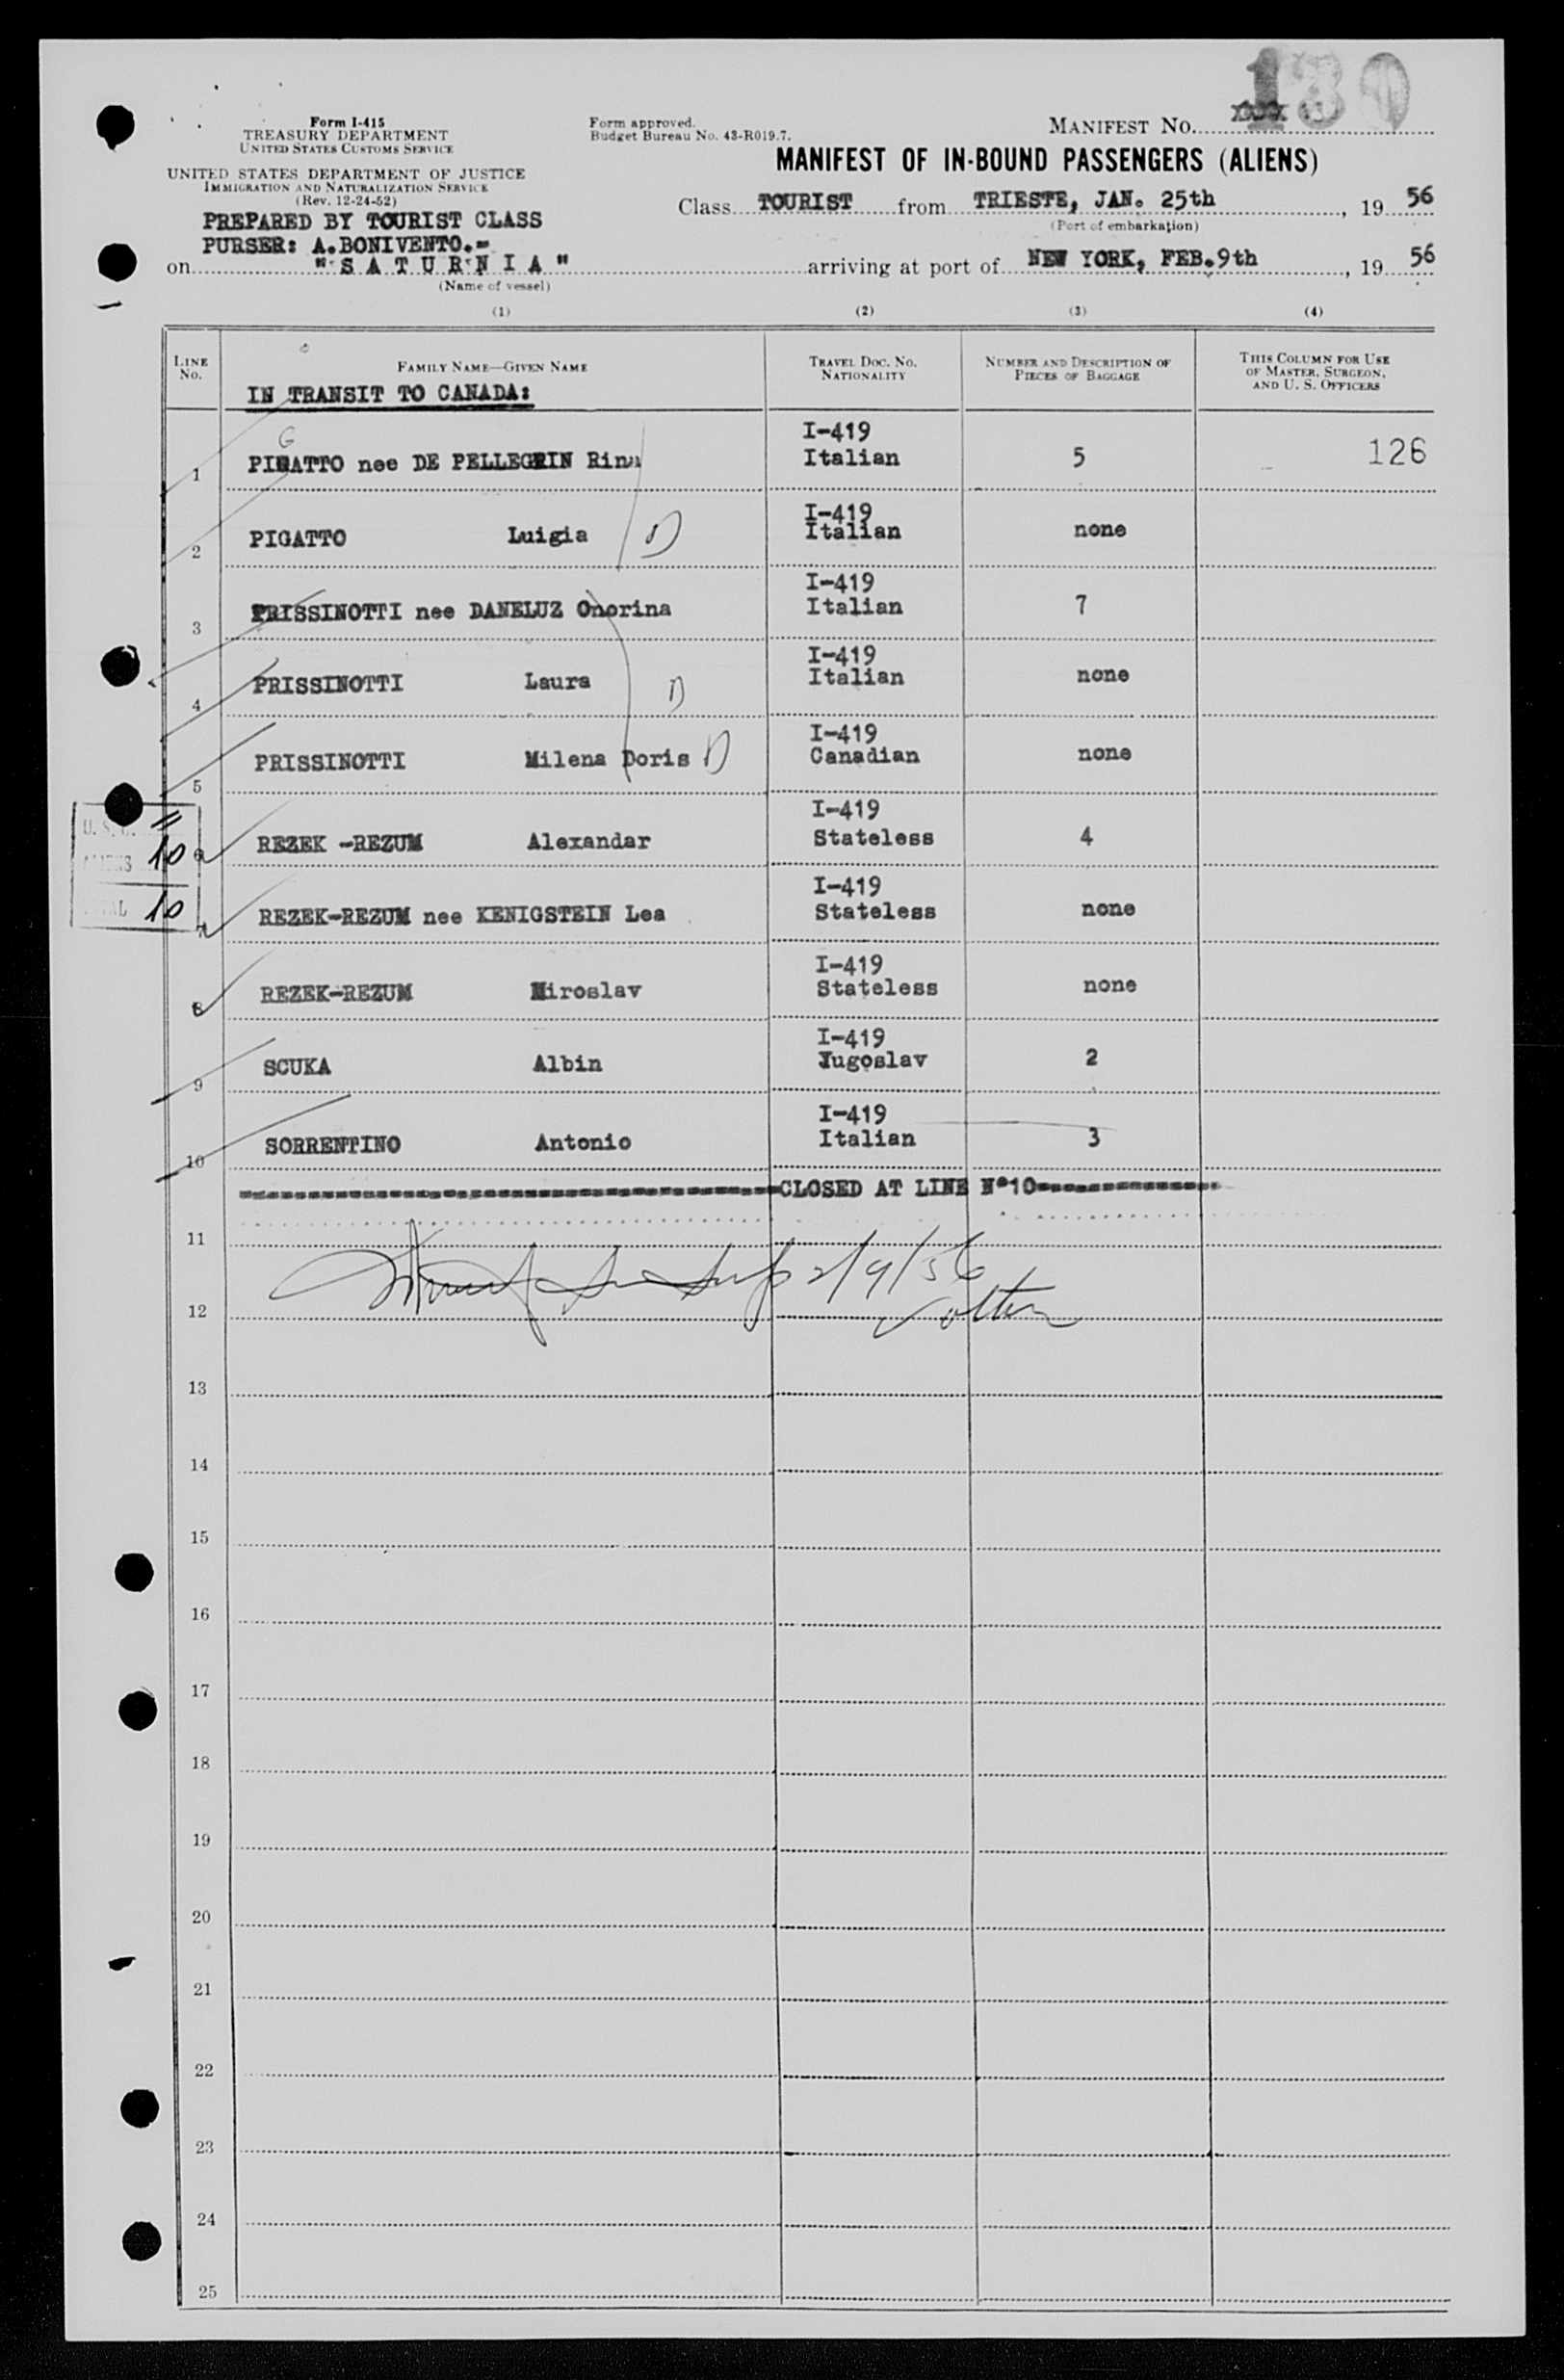 130
Form I-415
TREASURY DEPARTMENT
UNITED STATES CUSTOMS SERVICE
UNITED STATES DEPARTMENT OF JUSTICE
IMMIGRATION AND NATURALIZATION SERVICE
(Rev. 12-24-52)
PREPARED BY TOURIST CLASS
PURSER: A.BONIVENTO.=
Form approved.
Budget Bureau No. 43-R019.7.
MANIFEST NO.
MANIFEST OF IN-BOUND PASSENGERS (ALIENS)
Class TOURIST from TRIESTE, JAN. 25th, 19 56
(Port of embarkation)
on "S A T U R N I A" arriving at port of NEW YORK, FEB.9th, 19 56
(Name of vessel)
(1) (2) (3) (4)
LINE NO. FAMILY NAME—GIVEN NAME TRAVEL DOC. NO. NATIONALITY NUMBER AND DESCRIPTION OF PIECES OF BAGGAGE THIS COLUMN FOR USE OF MASTER, SURGEON, AND U. S. OFFICERS
IN TRANSIT TO CANADA:
G
1 PIGATTO nee DE PELLEGRIN Rina I-419 Italian 5 126
2 PIGATTO Luigia I-419 Italian none
3 PRISSINOTTI nee DANELUZ Onorina I-419 Italian 7
4 PRISSINOTTI Laura I-419 Italian none
5 PRISSINOTTI Milena Doris I-419 Canadian none
6 REZEK -REZUM Alexandar I-419 Stateless 4
7 REZEK-REZUM nee KENIGSTEIN Lea I-419 Stateless none
8 REZEK-REZUM Miroslav I-419 Stateless none
9 SCUKA Albin I-419 Jugoslav 2
10 SORRENTINO Antonio I-419 Italian 3
U. S. C.
ALIENS 10
TOTAL 10
CLOSED AT LINE N°10
11
2/9/56
12
13
14
15
16
17
18
19
20
21
22
23
24
25